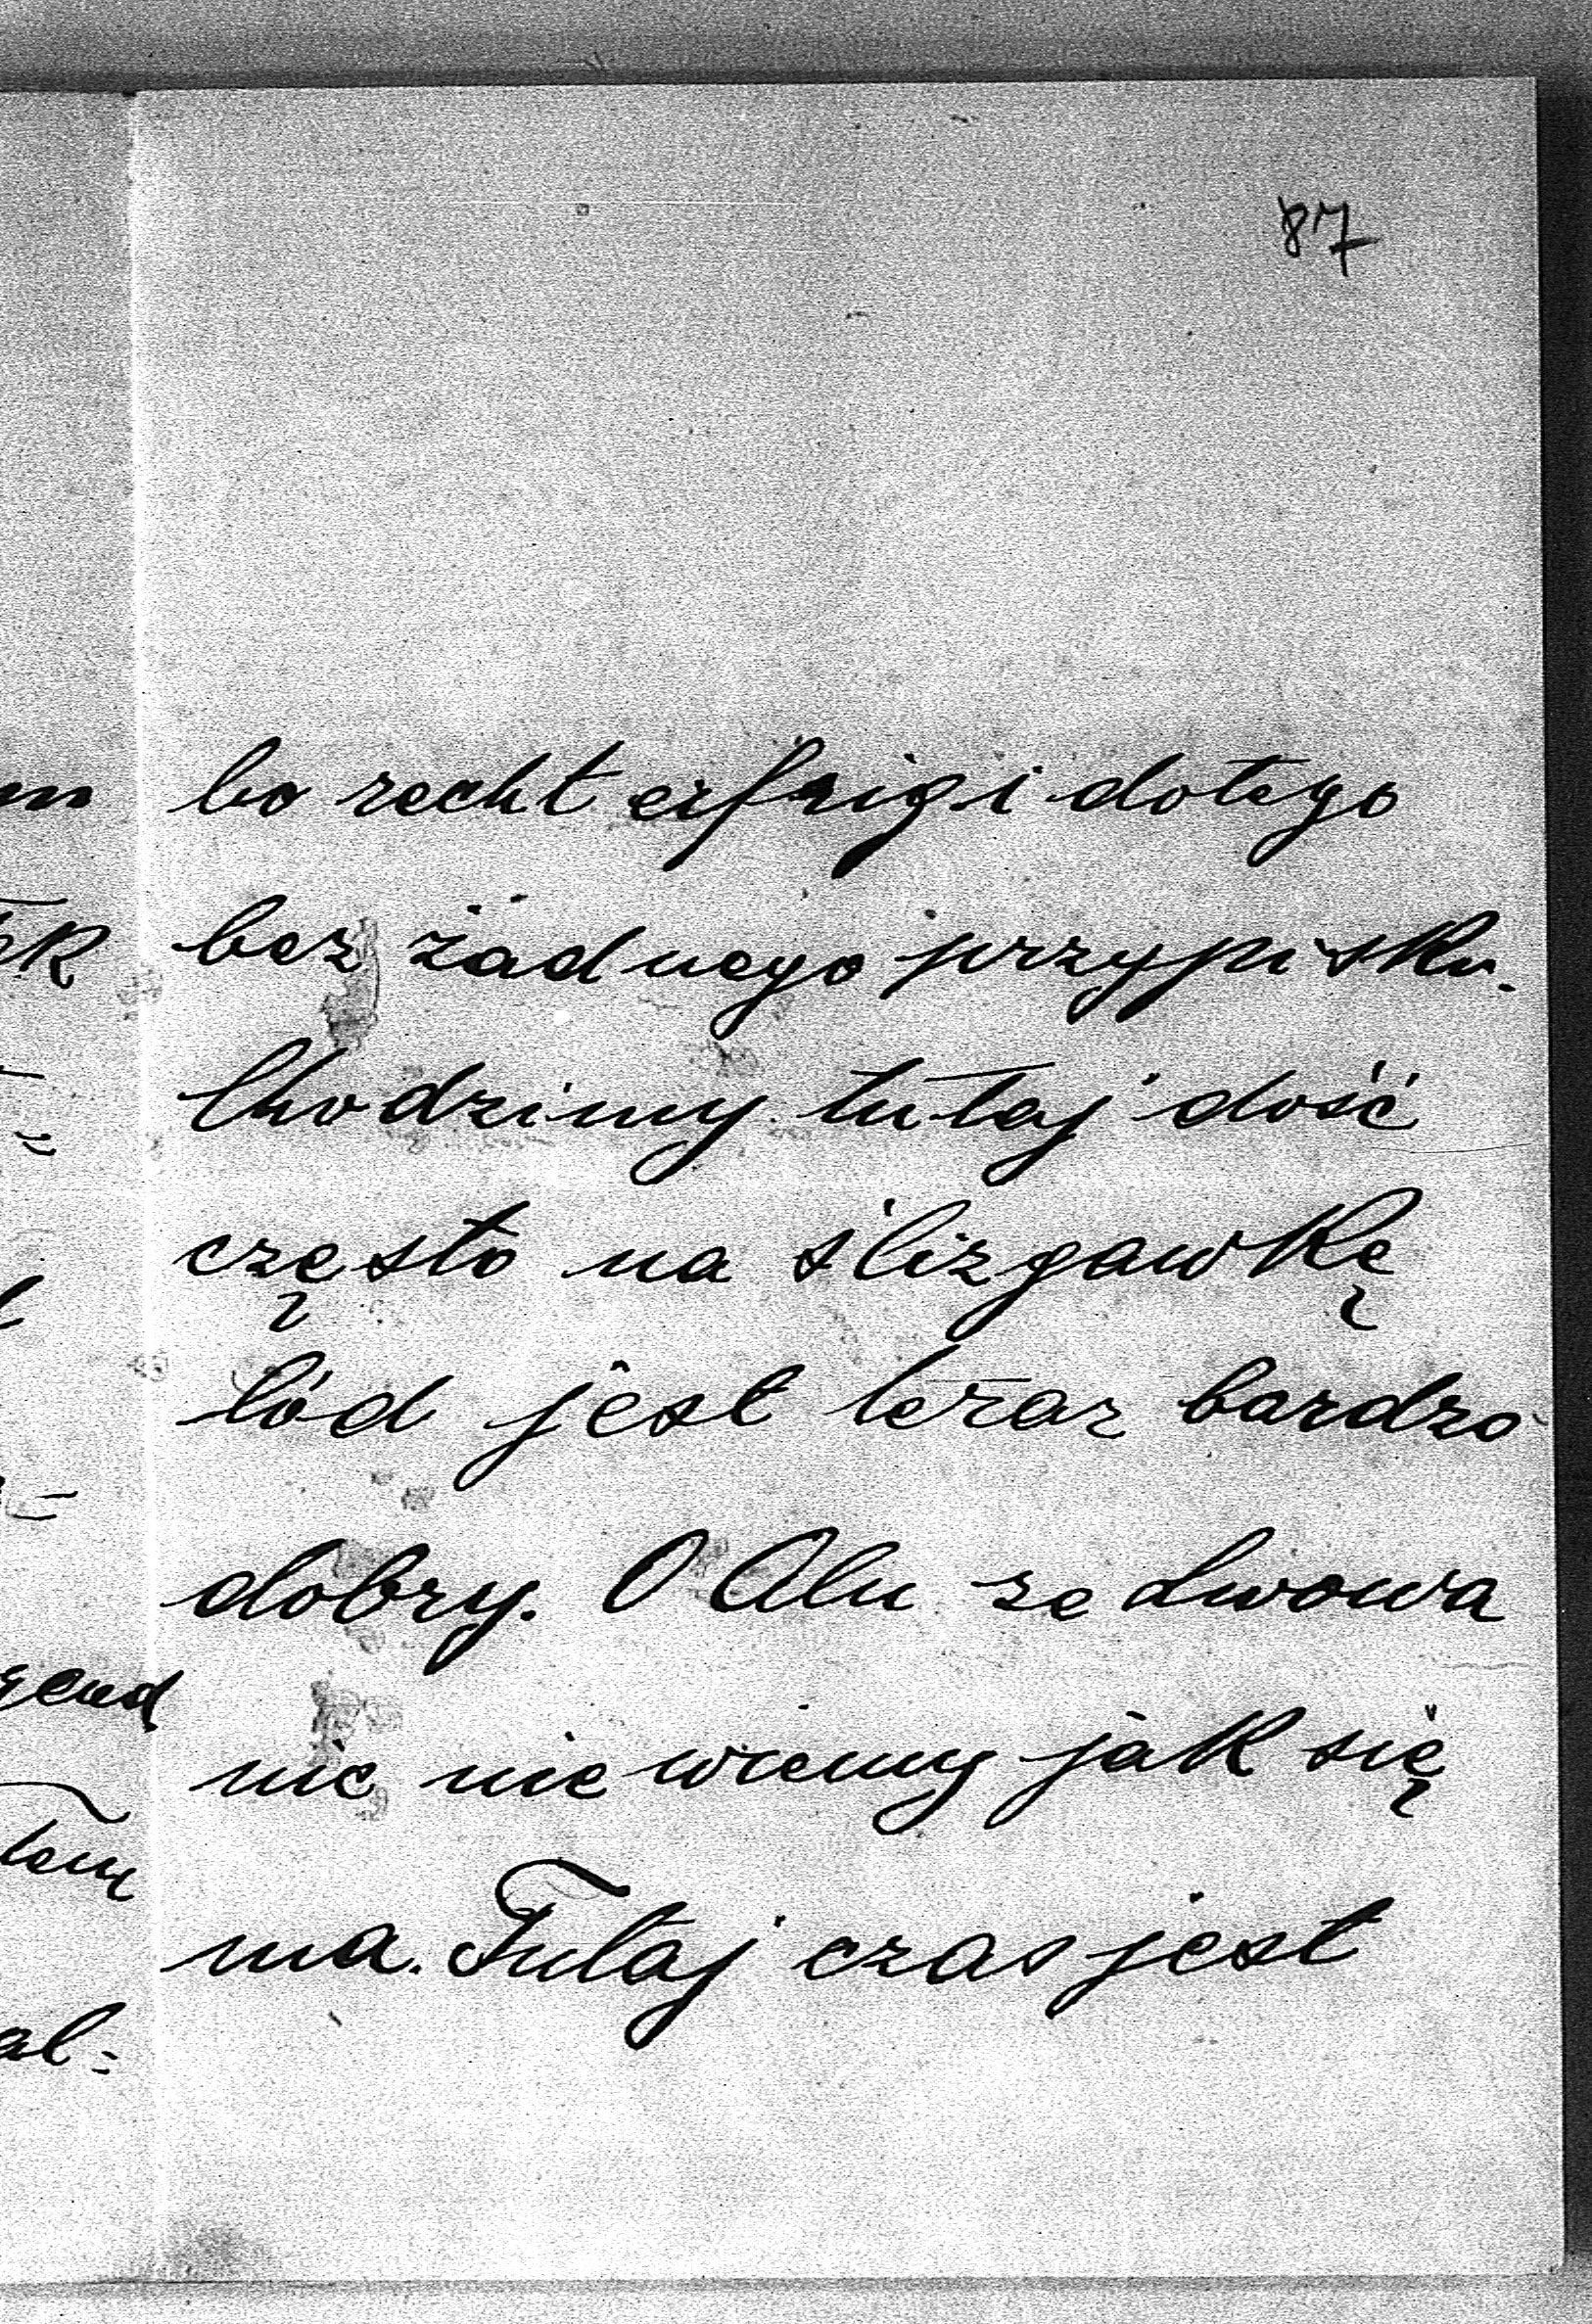 87
bo recht eifrig i dotego
bez żadnego przypisku.
Chodzimy tutaj dość
często na ślizgawkę
lód jest teraz bardzo
dobry. O Alu ze Lwowa
nic nie wiemy jak się
ma. Tutaj czas jest